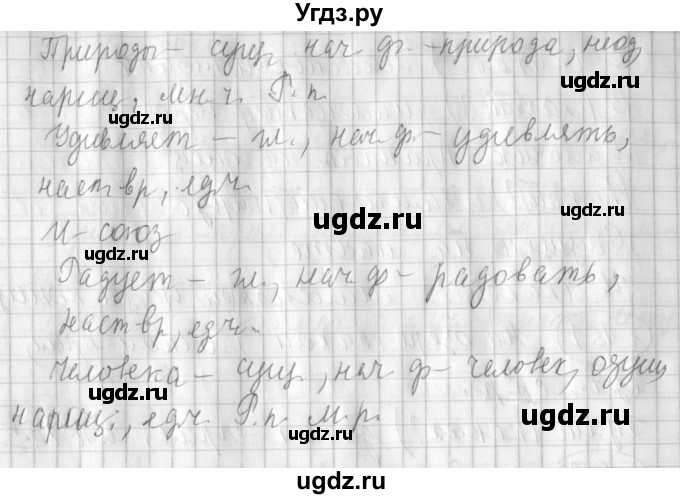 Угдз.ру
Природы – сущ, нач ф. – природа, неод,
нариц., мн.ч. Р.п.
ugdz.ru ugdz.ru
Удивляет – гл., нач ф – удивлять,
наст вр, едч.
ugdz.ru ugdz.ru
И – союз
ugdz.ru
Радует – гл., нач ф – радовать,
наст вр, едч.
ugdz.ru ugdz.ru
Человека – сущ, нач ф – человек, одуш,
ugdz.ru
нариц., едч. Р.п. м.р.
ugdz.ru ugdz.ru
ugdz.ru